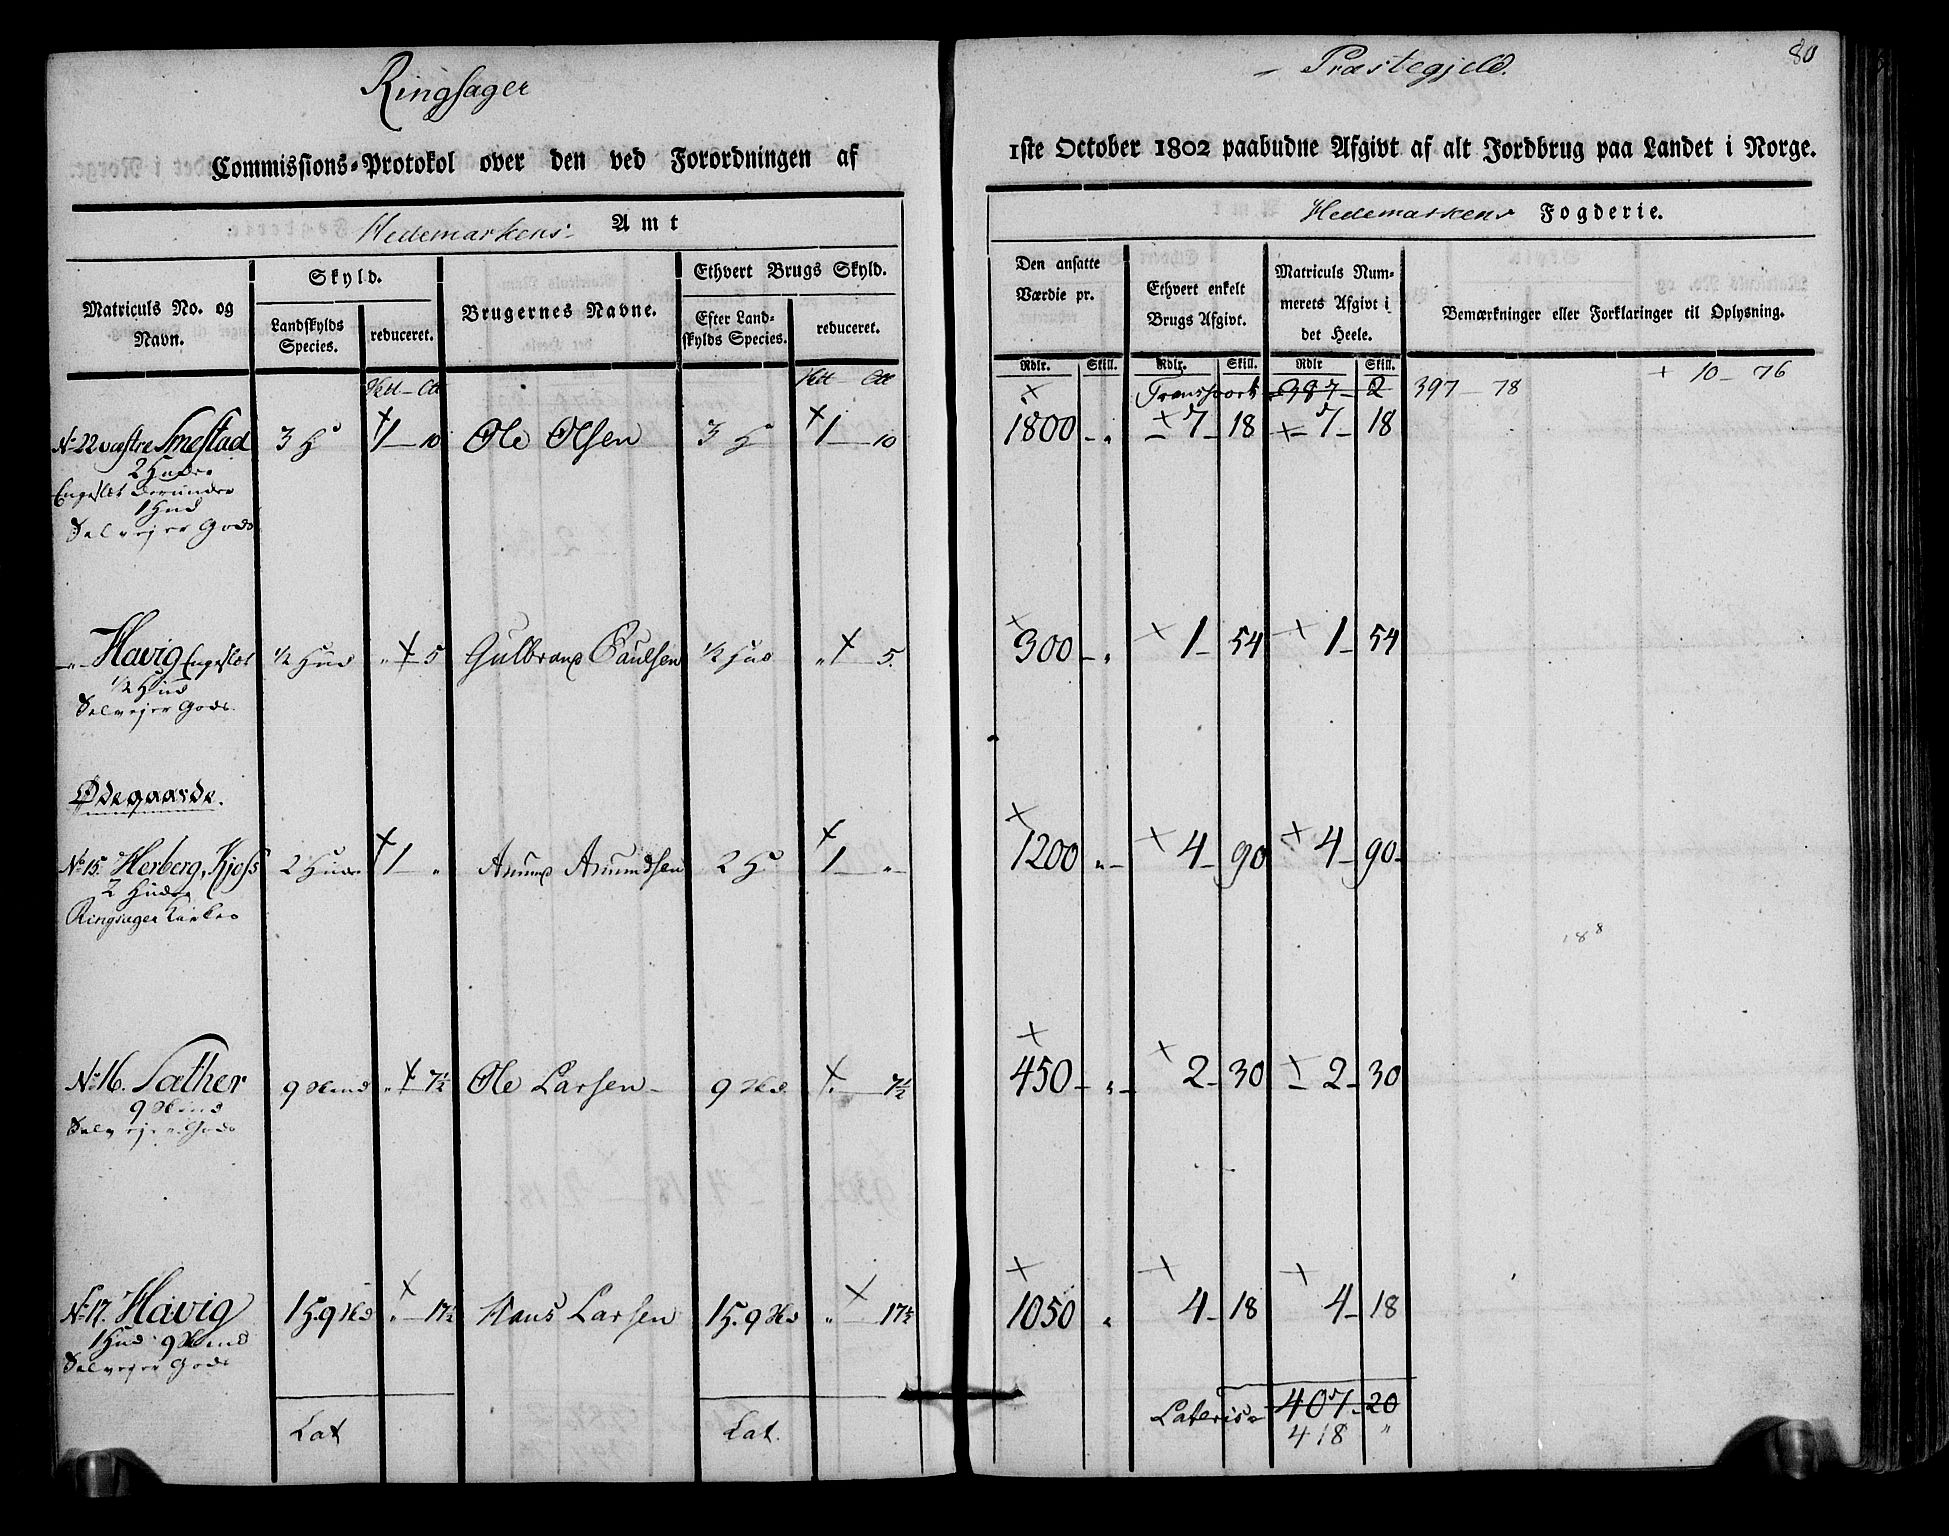 Ringsager
- Præstegjeld.
80
Commissions-Protokol over den ved Forordningen af
1ste October 1802 paabudne Afgivt af alt Jordbrug paa Landet i Norge.
Hedemarkens Amt
Hedemarkens Fogderie.
Matriculs No. og Navn.
Skyld.
Landskylds Species.
reduceret.
Brugernes Navne.
Ethvert Brugs Skyld.
Efter Landskylds Species.
reduceret.
Den ansatte Værdie pr.
Ethvert enkelt Brugs Afgivt.
Matriculs Nummerets Afgivt i det Heele.
Bemærkninger eller Forklaringer til Oplysning.
Rdlr. Skill. Rdlr. Skill. Rdlr Skill.
Transport 397 2 397 - 78 + 10 - 76
No 22 væstre Smestad 3 H 1 - 10 Ole Olsen 3 H 1 - 10 1800 - „ 7 - 18 7 - 18
2 Huder
Engeslæt derunder
1 Hud
Selvejer Gods
„ Havig Engeslæt ½ Hud „ 5 Gulbrand Paulsen ½ Hud „ 5. 300 - „ 1 - 54 1 - 54
½ Hud
Selvejer Gods
Ødegaarde.
No 15. Herberg, Kjos 2 Huder 1 „ Amund Amundsen 2 H 1 „ 1200 „ 4 - 90 4 - 90
2 Huder
Ringsager Kirke
No 16. Sæther 9 Skind „ 7½ Ole Larsen - 9 Skd „ 7½ 450 - „ 2 - 30 2 - 30
9 Skind
Selvejer Gods
No 17. Havig 1 H. 9 Skd „ 17½ Hans Larsen 1 H. 9 Skd „ 17½ 1050 „ 4 - 18 4 - 18
1 Hud 9 Skind
Selvejer Gods
Lat Lat. Lateris 407 - 20
418 „